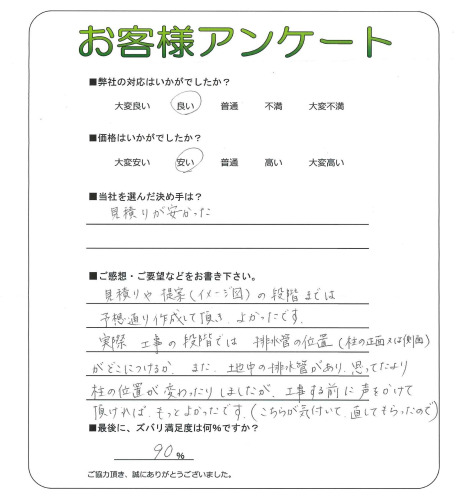 お客様アンケート
■弊社の対応はいかがでしたか？
大変良い 良い 普通 不満 大変不満
■価格はいかがでしたか？
大変安い 安い 普通 高い 大変高い
■当社を選んだ決め手は？
見積りが安かった
■ご感想・ご要望などをお書き下さい。
見積りや提案(イメージ図)の段階までは
予想通り作成して頂き、よかったです。
実際工事の段階では 排水管の位置(柱の正面又は側面)
がどこにつけるか、また、地中の排水管があり、思ってたより
柱の位置が変わったりしましたが、工事する前に声をかけて
頂ければ、もっとよかったです。(こちらが気付いて、直してもらったので)
■最後に、ズバリ満足度は何%ですか？
90%
ご協力頂き、誠にありがとうございました。